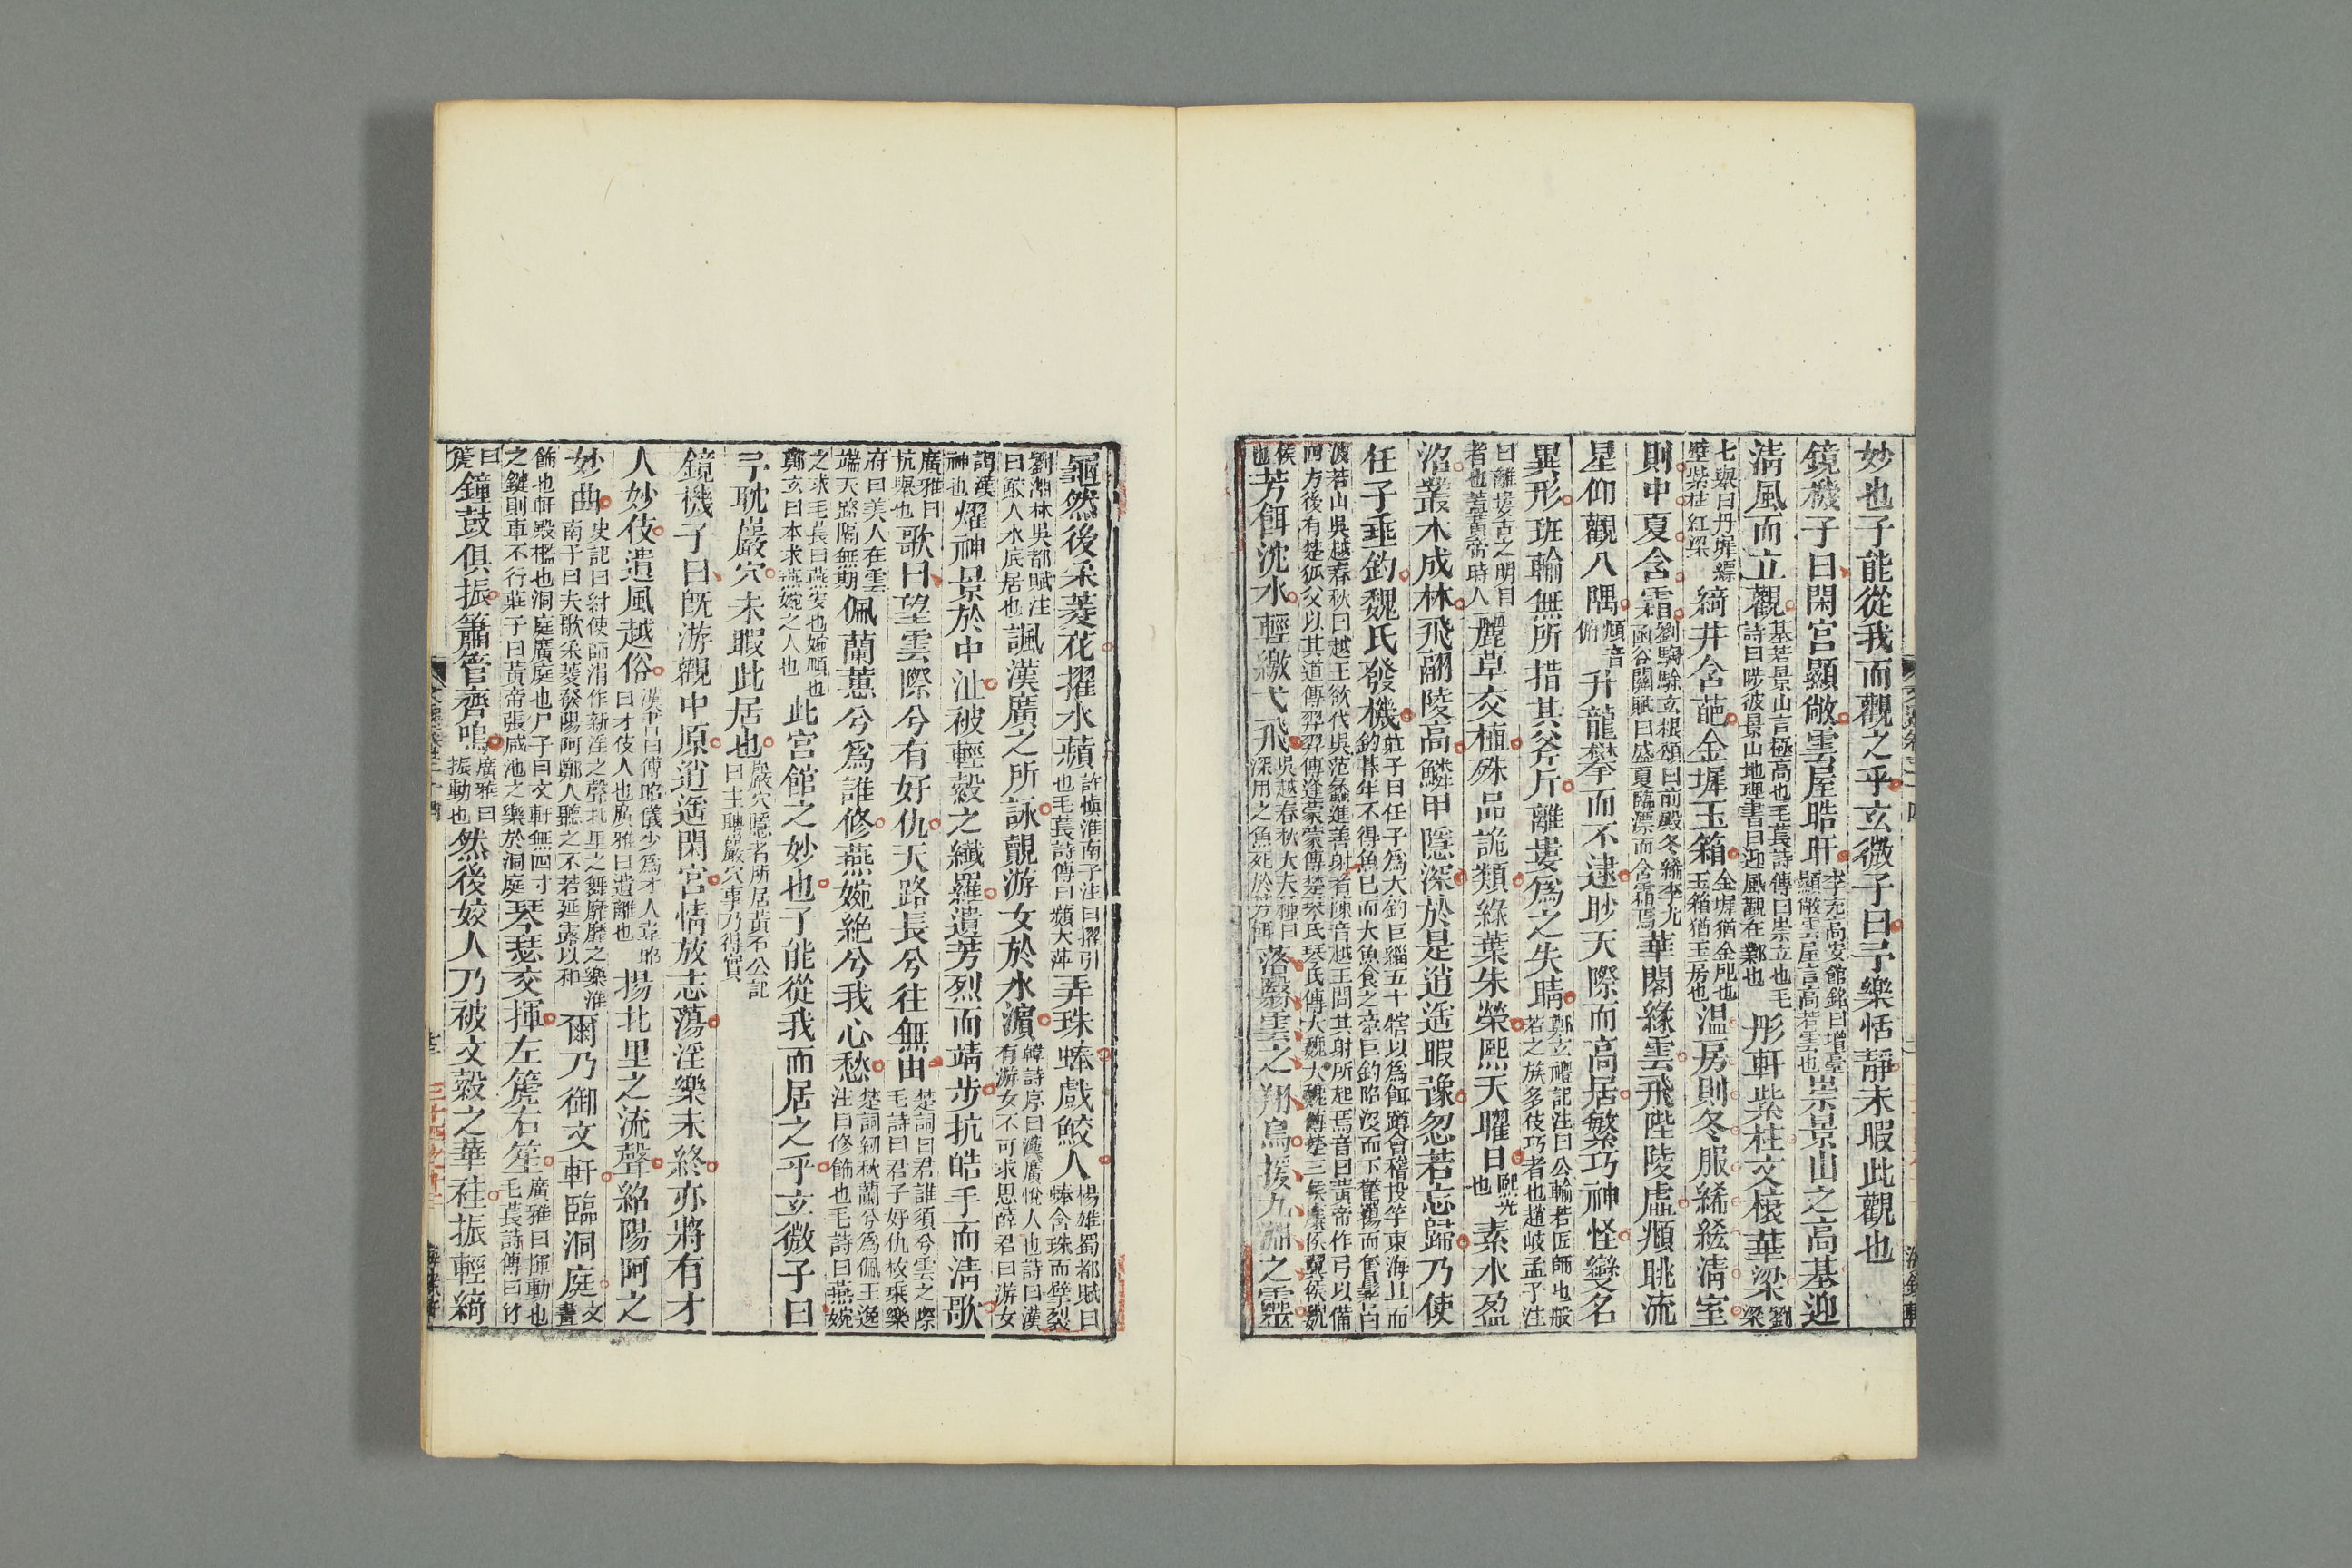 妙也子能從我而觀之乎玄微子曰予樂恬靜未暇此觀也
鏡機子曰閑宮顯敞雲屋晧旰李充高安館銘曰增臺顯敞雲屋言高若雲也崇景山之高基迎
清風而立觀基若景山言極高也毛萇詩傳曰崇立也毛詩曰陟彼景山地理書曰迎風觀在鄴也彤軒紫柱文榱華梁劉梁
七舉曰丹墀縹壁紫柱紅梁綺井含葩金墀玉箱金墀猶金戺也玉箱猶玉房也温房則冬服絺綌清室
則中夏含霜劉騊駼玄根頌曰前殿冬絺李尤函谷關賦曰盛夏臨漂而含霜焉華閣緣雲飛陛陵虛頫眺流
星仰觀八隅頫音俯升龍攀而不逮眇天際而高居繁巧神怪變名
異形班輸無所措其斧斤離婁爲之失睛鄭玄禮記注曰公輸若匠師也般若之族多伎巧者也趙岐孟子注
曰離婁古之明目者也蓋黃帝時人麗草交植殊品詭類綠葉朱榮熙天曜日熙光也素水盈
沼叢木成林飛翮陵高鱗甲隱深於是逍遙暇豫忽若忘歸乃使
任子垂釣魏氏發機莊子曰任子爲大釣巨緇五十犗以爲餌蹲會稽投竿東海旦而釣朞年不得魚已而大魚食之牽巨釣陷沒而下驚揚而奮鬐白
波若山吳越春秋曰越王欲伐吳范蠡進善射者陳音越王問其射所起焉音曰黃帝作弓以備四方後有楚狐父以其道傳羿羿傳逄蒙蒙傳楚琴氏琴氏傳大魏大魏傳楚三侯麋侯翼侯魏
侯也芳餌沈水輕繳弋飛吳越春秋大夫種曰深用之魚死於芳餌落翳雲之翔鳥援九淵之靈
龜然後采菱花擢水蘋許慎淮南子注曰擢引也毛萇詩傳曰蘋大萍弄珠蜯戲鮫人楊雄蜀都賦曰蜯含珠而擘裂
劉淵林吳都賦注曰鮫人水底居也諷漢廣之所詠覿游女於水濵韓詩序曰漢廣悅人也詩曰漢有游女不可求思薛君曰游女
謂漢神也燿神景於中沚被輕縠之纖羅遺芳烈而靖步抗皓手而清歌
廣雅曰抗舉也歌曰望雲際兮有好仇天路長兮往無由楚詞曰君誰須兮雲之際毛詩曰君子好仇枚乘樂
府曰美人在雲端天路隔無期佩蘭蕙兮爲誰修燕婉絶兮我心愁楚詞紉秋蘭兮爲佩王逸注曰修飾也毛詩曰燕婉
之求毛萇曰燕安也婉順也鄭玄曰本求燕婉之人也此宮館之妙也子能從我而居之乎玄微子曰
予耽巖穴未暇此居也巖穴隱者所居黃石公記曰主聘巖穴事乃得實
鏡機子曰既游觀中原逍遙閑宮情放志蕩淫樂未終亦將有才
人妙伎遺風越俗漢書曰傅昭儀少爲才人韋昭曰才伎人也廣雅曰遺離也揚北里之流聲紹陽阿之
妙曲史記曰紂使師涓作新淫之聲北里之舞靡靡之樂淮南子曰夫歌采菱發陽阿鄭人聽之不若延露以和爾乃御文軒臨洞庭文畫
飾也軒殿檻也洞庭廣庭也尸子曰文軒無四寸之鍵則車不行莊子曰黃帝張咸池之樂於洞庭琴瑟交揮左篪右笙廣雅曰揮動也毛萇詩傳曰竹
曰篪鐘鼓俱振簫管齊鳴廣雅曰振動也然後姣人乃被文縠之華袿振輕綺